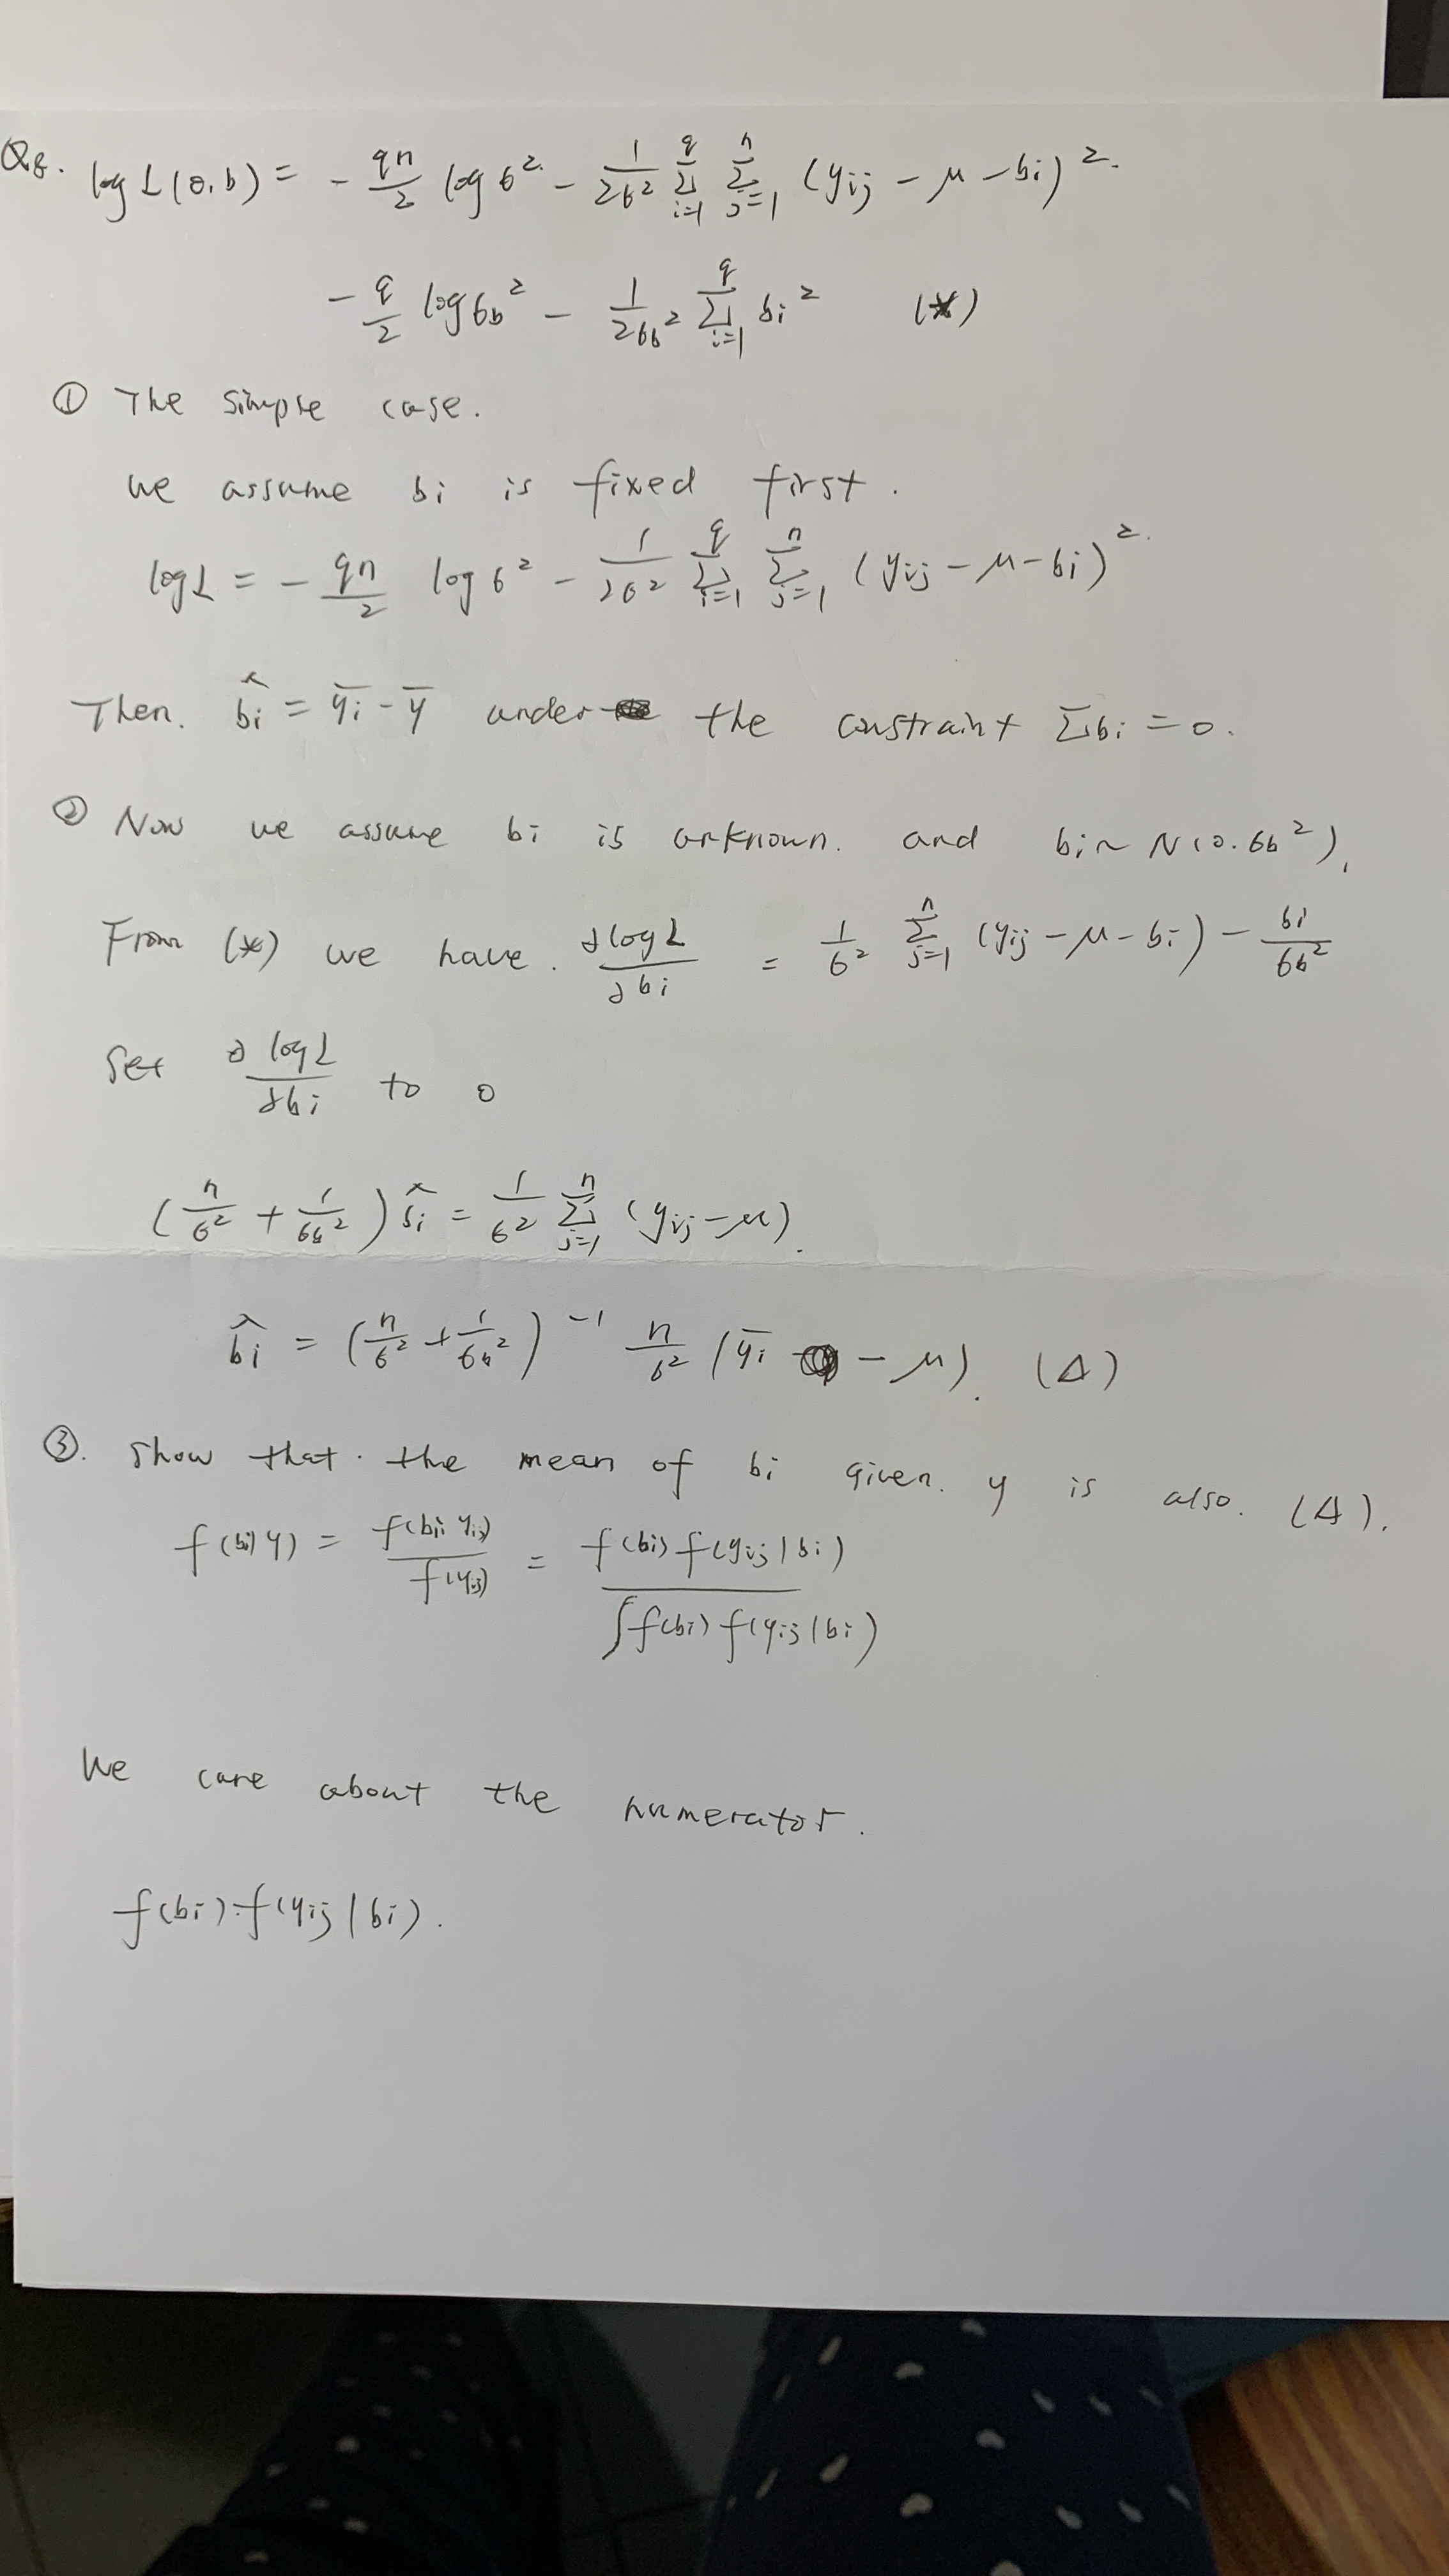 Q8. log L(θ,b) = - qn/2 log σ² - 1/2σ² Σ_{i=1}^{q} Σ_{j=1}^{n} (yij - μ - bi)².
- q/2 log σb² - 1/2σb² Σ_{i=1}^{q} bi² (*)
① The simple case.
we assume bi is fixed first.
log L = - qn/2 log σ² - 1/2σ² Σ_{i=1}^{q} Σ_{j=1}^{n} (yij - μ - bi)².
Then. b̂i = ȳi - ȳ under the constraint Σbi = 0.
② Now we assume bi is unknown. and bi ~ N(0. σb²).
From (*) we have. ∂log L/∂bi = 1/σ² Σ_{j=1}^{n} (yij - μ - bi) - bi/σb²
Set ∂ log L/∂bi to 0
(n/σ² + 1/σb²) b̂i = 1/σ² Σ_{j=1}^{n} (yij - μ).
b̂i = (n/σ² + 1/σb²)⁻¹ n/σ² (ȳi - μ). (Δ)
③. Show that. the mean of bi given. y is also. (Δ).
f(bi|y) = f(bi, yij)/f(yij) = f(bi) f(yij|bi)/∫f(bi) f(yij|bi)
We care about the numerator.
f(bi).f(yij|bi).